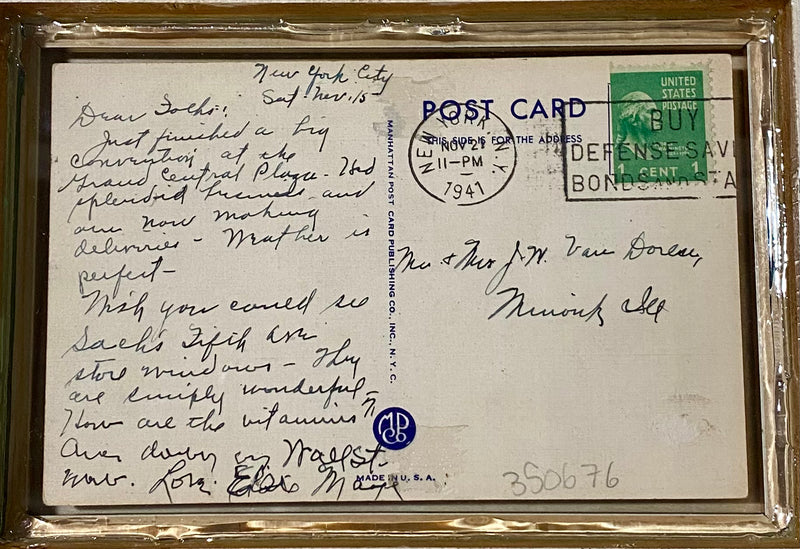 New York City
Sat. Nov. 15
Dear Folks:
Just finished a big
convention at the
Grand Central Plaza - Had
splendid business and
am now making
deliveries - Weather is
perfect -
Wish you could see
Sachs Fifth Ave
store windows - They
are simply wonderful -
How are the vitamins?
Am down on Wall St.
now. Love
POST CARD
THIS SIDE IS FOR THE ADDRESS
NEW YORK, N.Y.
NOV 22
11-PM
1941
UNITED
STATES
POSTAGE
1 CENT 1
BUY
DEFENSE SAVI
BONDS AND STA
MANHATTAN POST CARD PUBLISHING CO., INC., N. Y. C.
Mr & Mrs J. W. Van Doren,
Minonk Ill
MPCo
MADE IN U. S. A.
350676